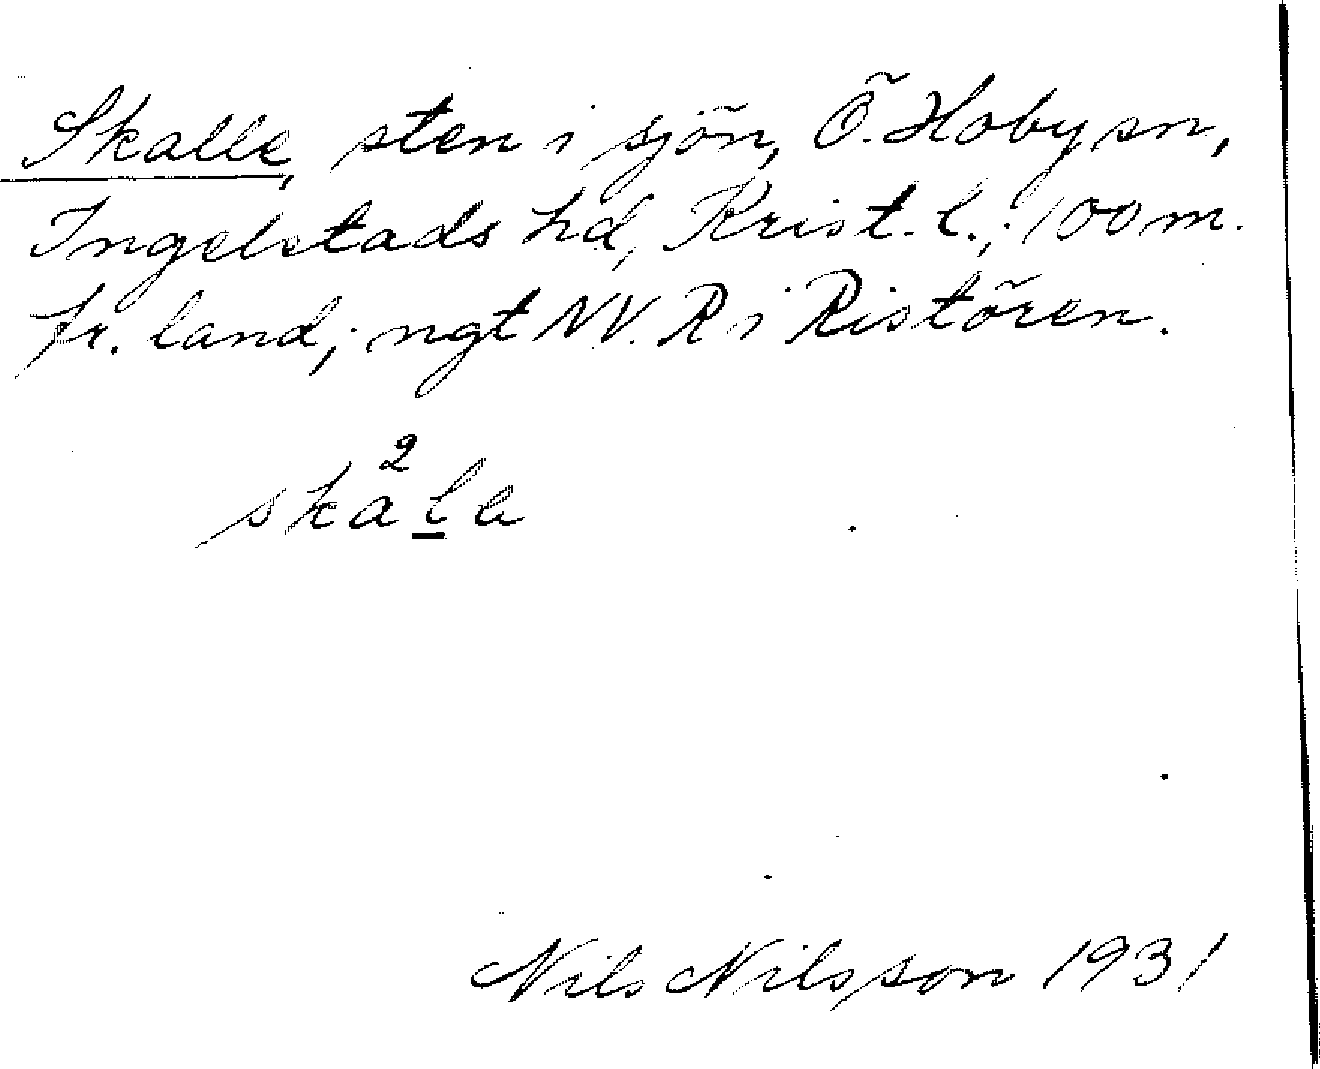 Skalle, sten i sjön, Ö. Hoby sn,
Ingelstads hd, Krist. l.; 100 m.
fr. land; ngt NV. R i Ristören.
ska²l̲a
Nils Nilsson 1931